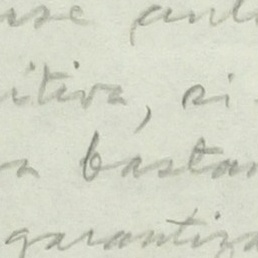 itiva, si
a bastan
garantiza